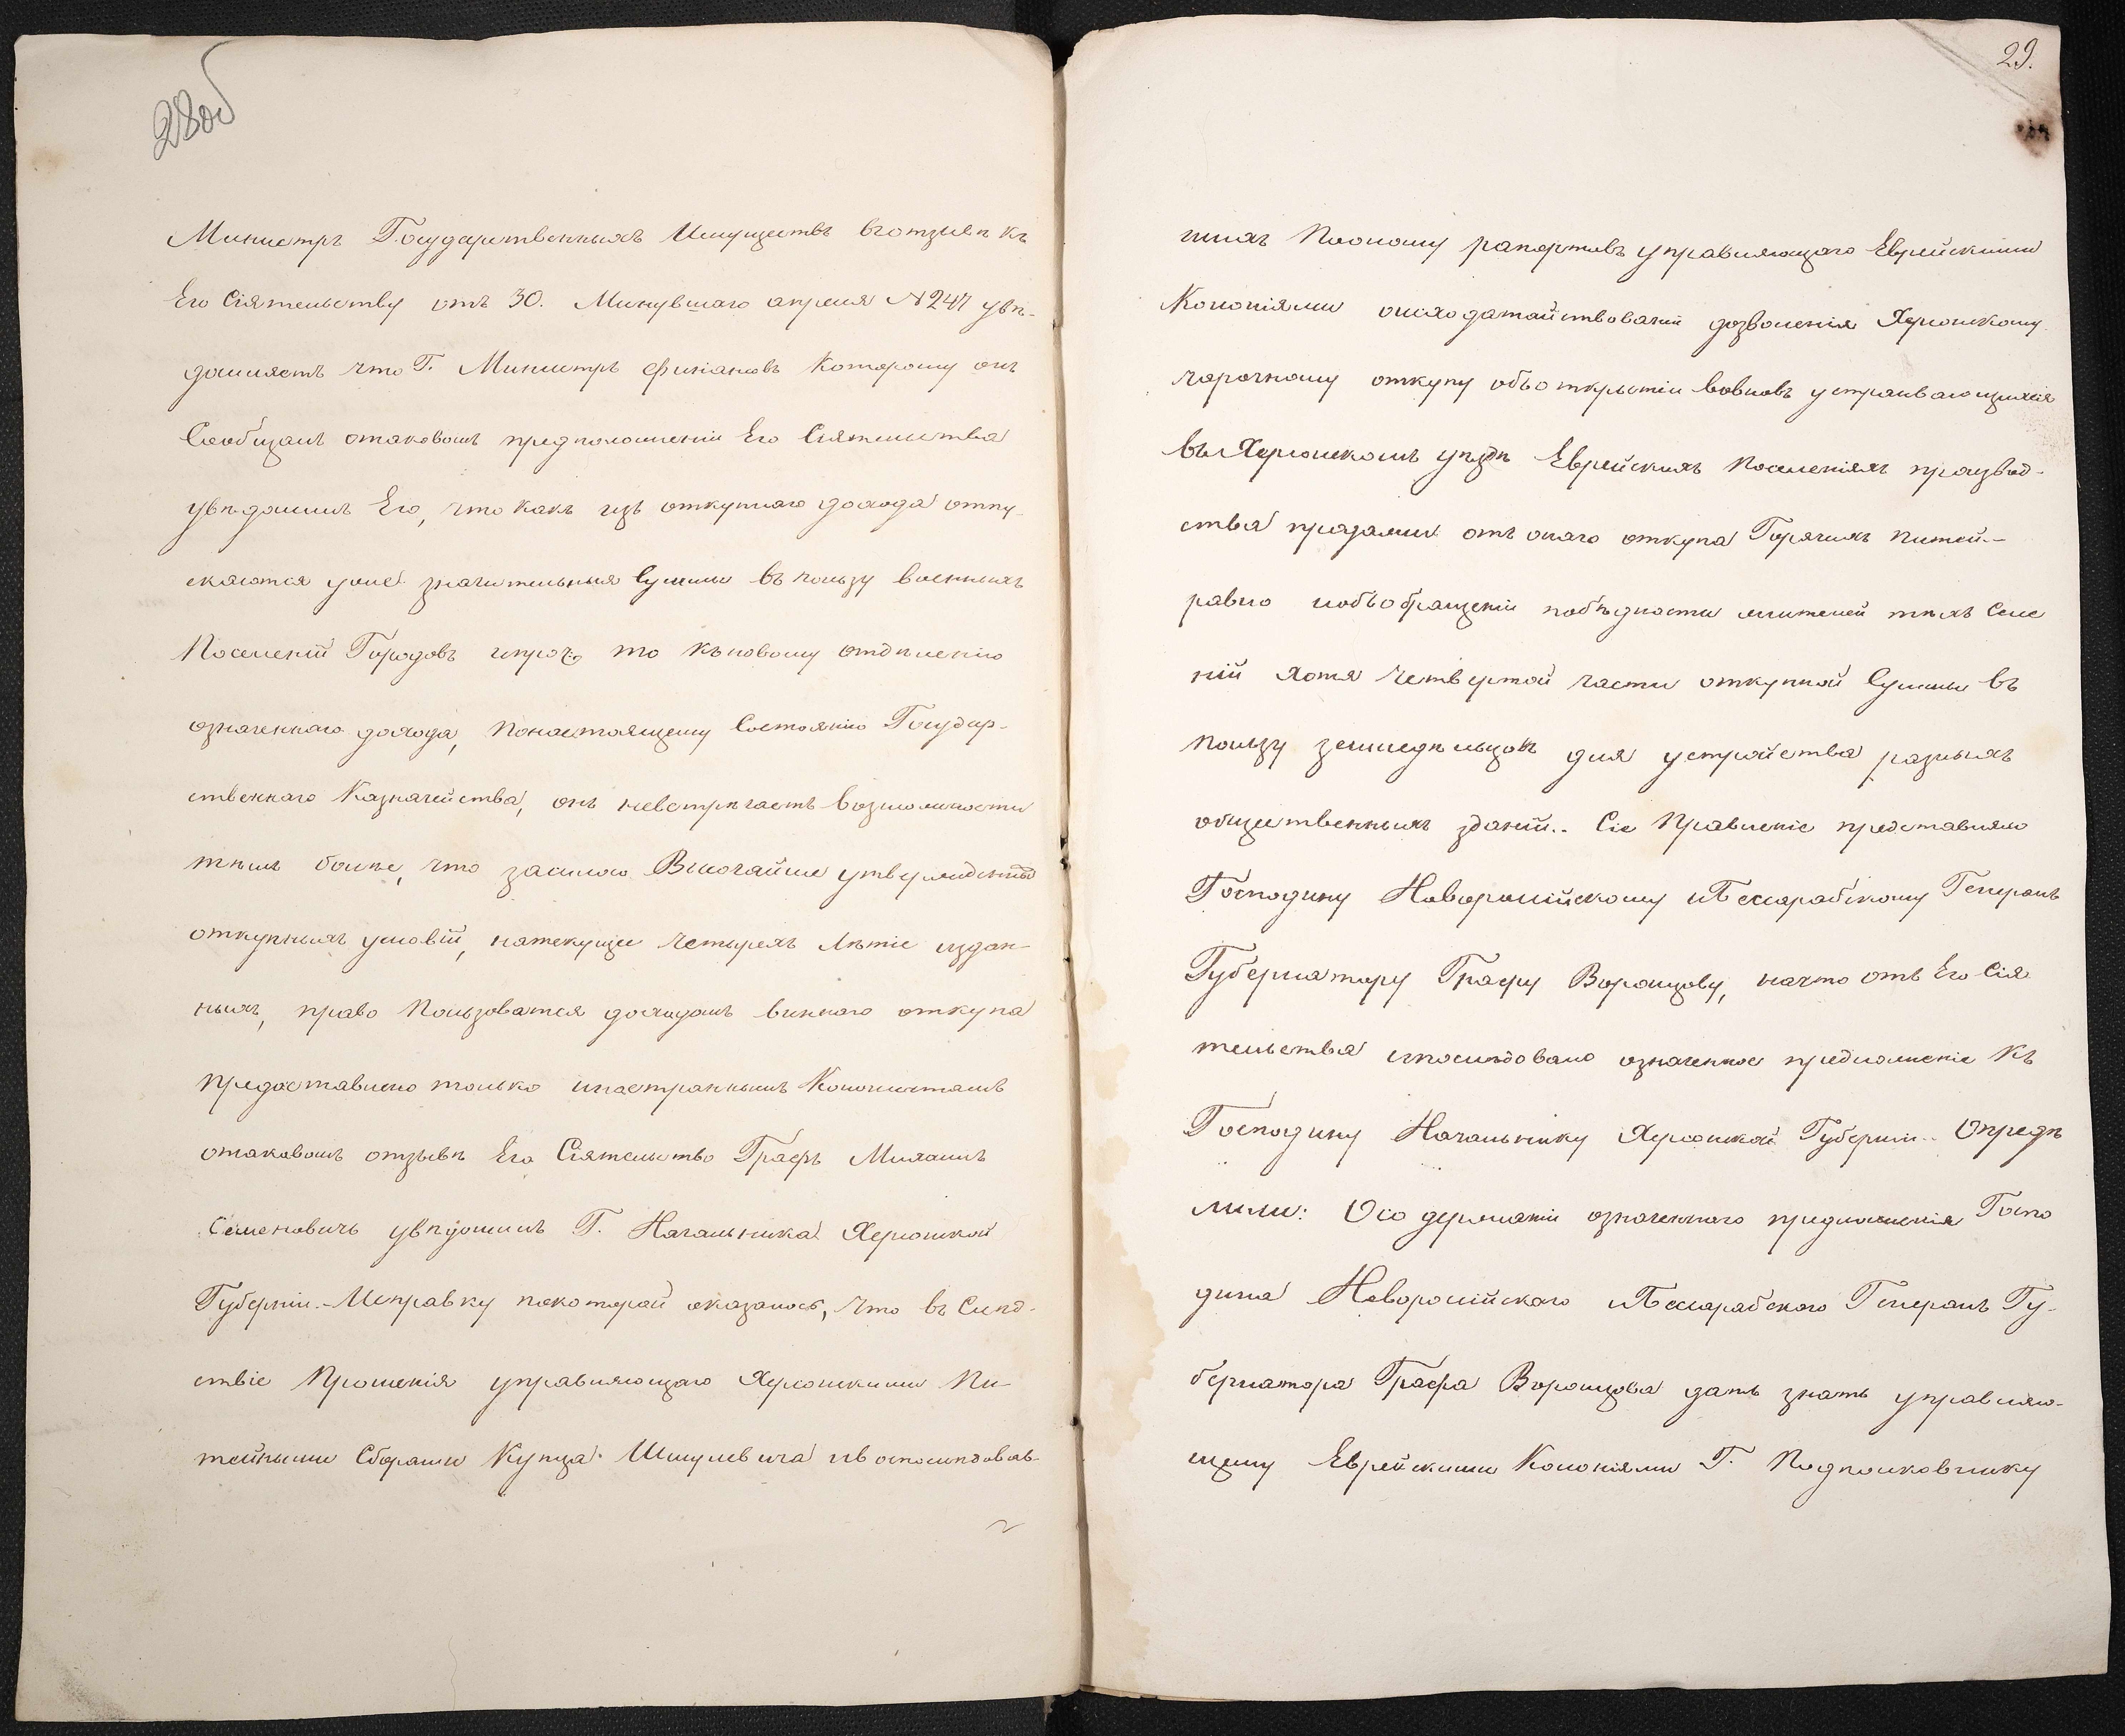 28об
Министръ Государственныхъ Имуществъ вѣотзывѣ къ
Его Сіятельству отъ 30. Минувшаго апреля №247 увѣ-
домляетъ что Г. Министръ финансовъ которому онъ
Сообщалъ отаковомъ предположеніи Его Сіятельства
увѣдомилъ Его, что какъ изъ откупнаго дохода отпу-
скаются уже значительныя Суммы въ пользу военныхъ
Поселеній Городовъ ипроч. то къновому отдѣленію
означеннаго дохода, понастоящему Состоянію Государ-
ственнаго Казначейства, онъ невстрѣчаетъ возможности
тѣмъ болѣе, что засилою Высочайше утвержденныхъ
откупныхъ условій, натекущее четырехъ лѣтіе издан-
ныхъ, право пользоватся доходомъ виннаго откупа
предоставлено только иностраннымъ Колонистамъ
отаковомъ отзывѣ Его Сіятельство Графъ Михаилъ
Семеновичъ увѣдомилъ Г. Начальника Херсонской
Губерніи.- Исправку покоторой оказалось, что въ Слѣд-
ствіе Прошенія управляющаго Херсонскими Пи-
тейными Сборами Купца Шмулевича ивоспослѣдовав-
29.
шихъ Пооному рапортовъ управляющаго Еврейскими
Колоніями оисходатайствованіи дозволенія Херсонскому
чарочному откупу объоткрытіи вовновь устраивающихся
въ Херсонскомъ уѣздѣ Еврейскихъ Поселеніяхъ производ-
ства продажи отъ онаго откупа Горячихъ питей.-
равно иобъобращеніи побѣдности жителей тѣхъ Селе
ній хотя четвертой части откупной Суммы въ
пользу земледѣльцовъ для устройства разныхъ
общественныхъ зданій.. Сіе Правленіе представляло
Господину Новоросійскому иБессарабскому Генералъ
Губернатору Графу Воронцову, начто отъ Его Сія
тельства ипослѣдовало означенное предложеніе къ
Господину Начальнику Херсонской Губерніи.. Опредѣ
лили: Осодержаніи означеннаго предложенія Госпо
дина Новоросійскаго иБессарабскаго Генералъ Гу-
бернатора Графа Воронцова дать знать управляю-
щему Еврейскими Колоніями Г. Подполковнику